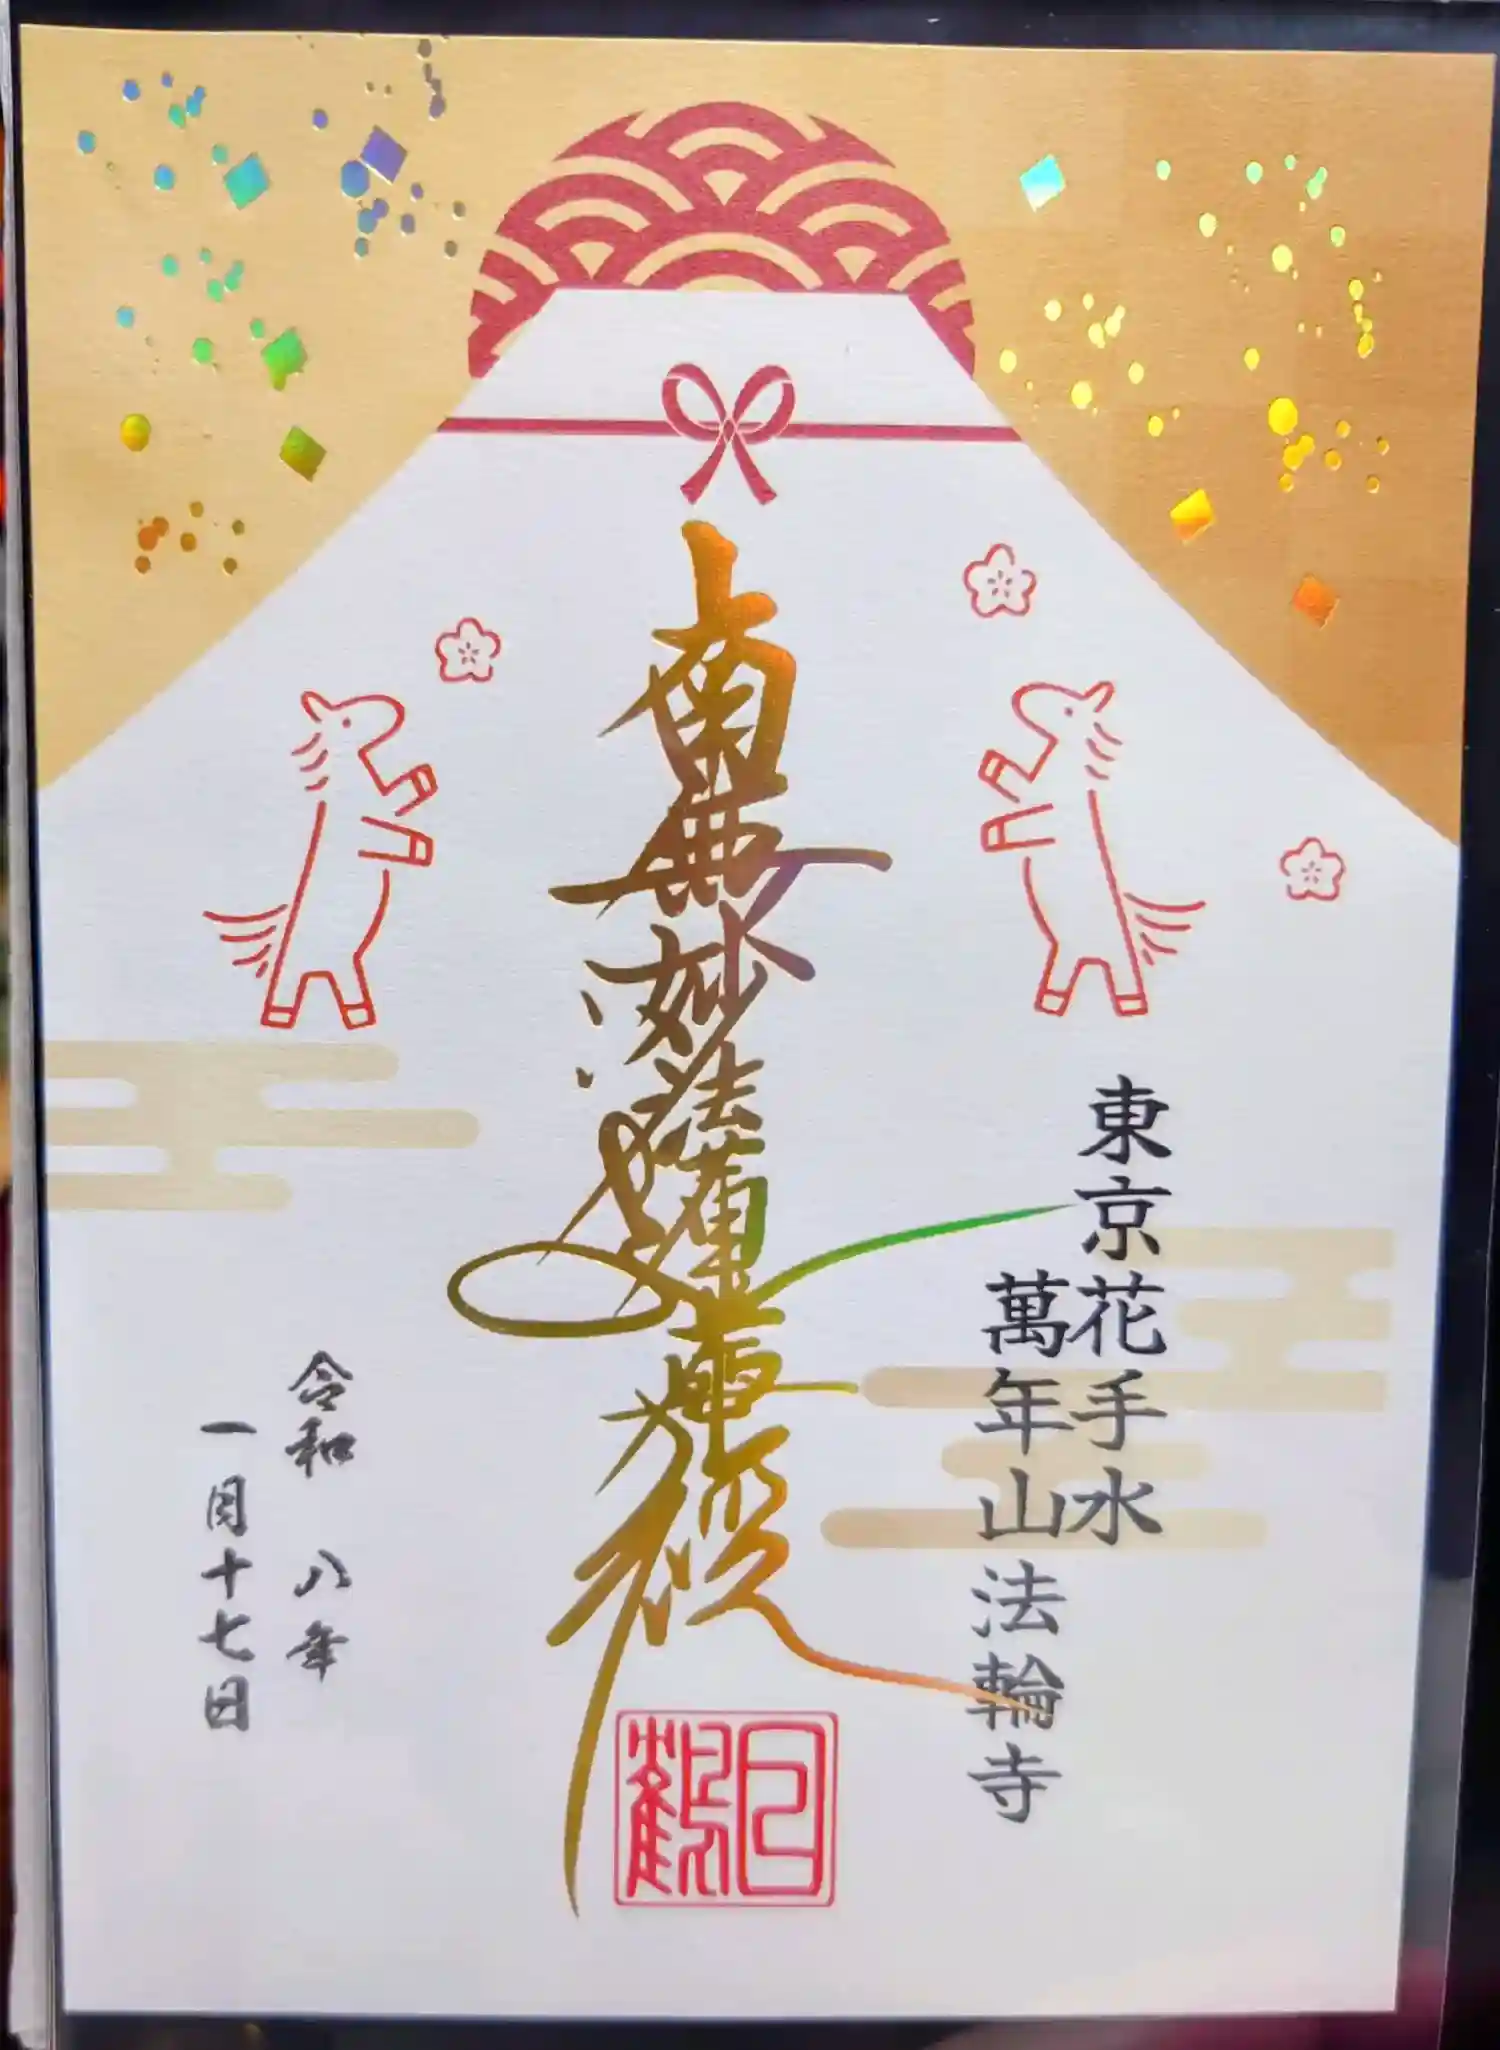 東京花手水
萬年山法輪寺
南無妙法蓮華経
日觀
令和 八年
一月十七日